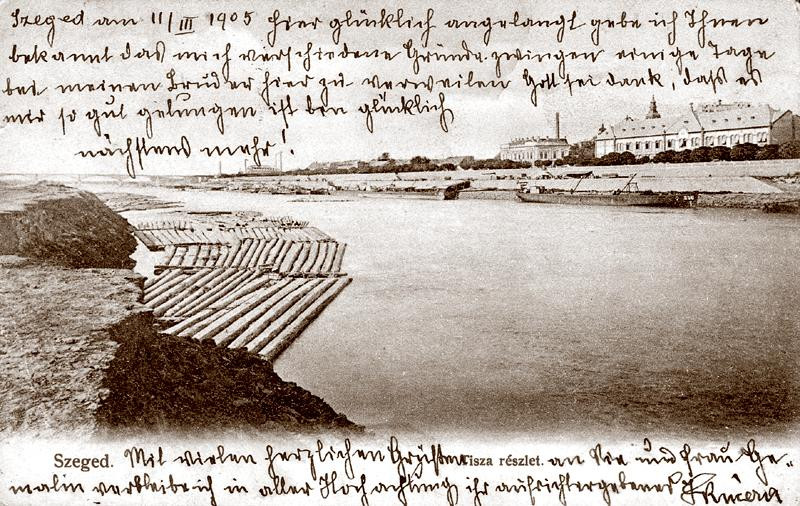 Szeged am 11/III 1905 Hier glücklich angelangt gebe ich Ihnen
bekannt das mich verschiedene Gründe zwingen einige Tage
bei meinen Bruder hier zu verweilen Gott sei dank, dass es
mir so gut gelungen ist bin glücklich
nächstens mehr!
Szeged. Tisza részlet.
Mit vielen herzlichen Grüssen an Sie und Frau Ge-
malin verbleibe ich in aller Hochachtung ihr aufrichtergebener